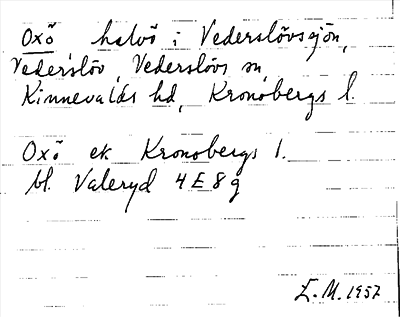 Oxö halvö i Vederslövssjön,
Vederslöv, Vederslövs sn,
Kinnevalds hd, Kronobergs l.
Oxö ek Kronobergs l.
bl. Valeryd 4E8g
L.M. 1957